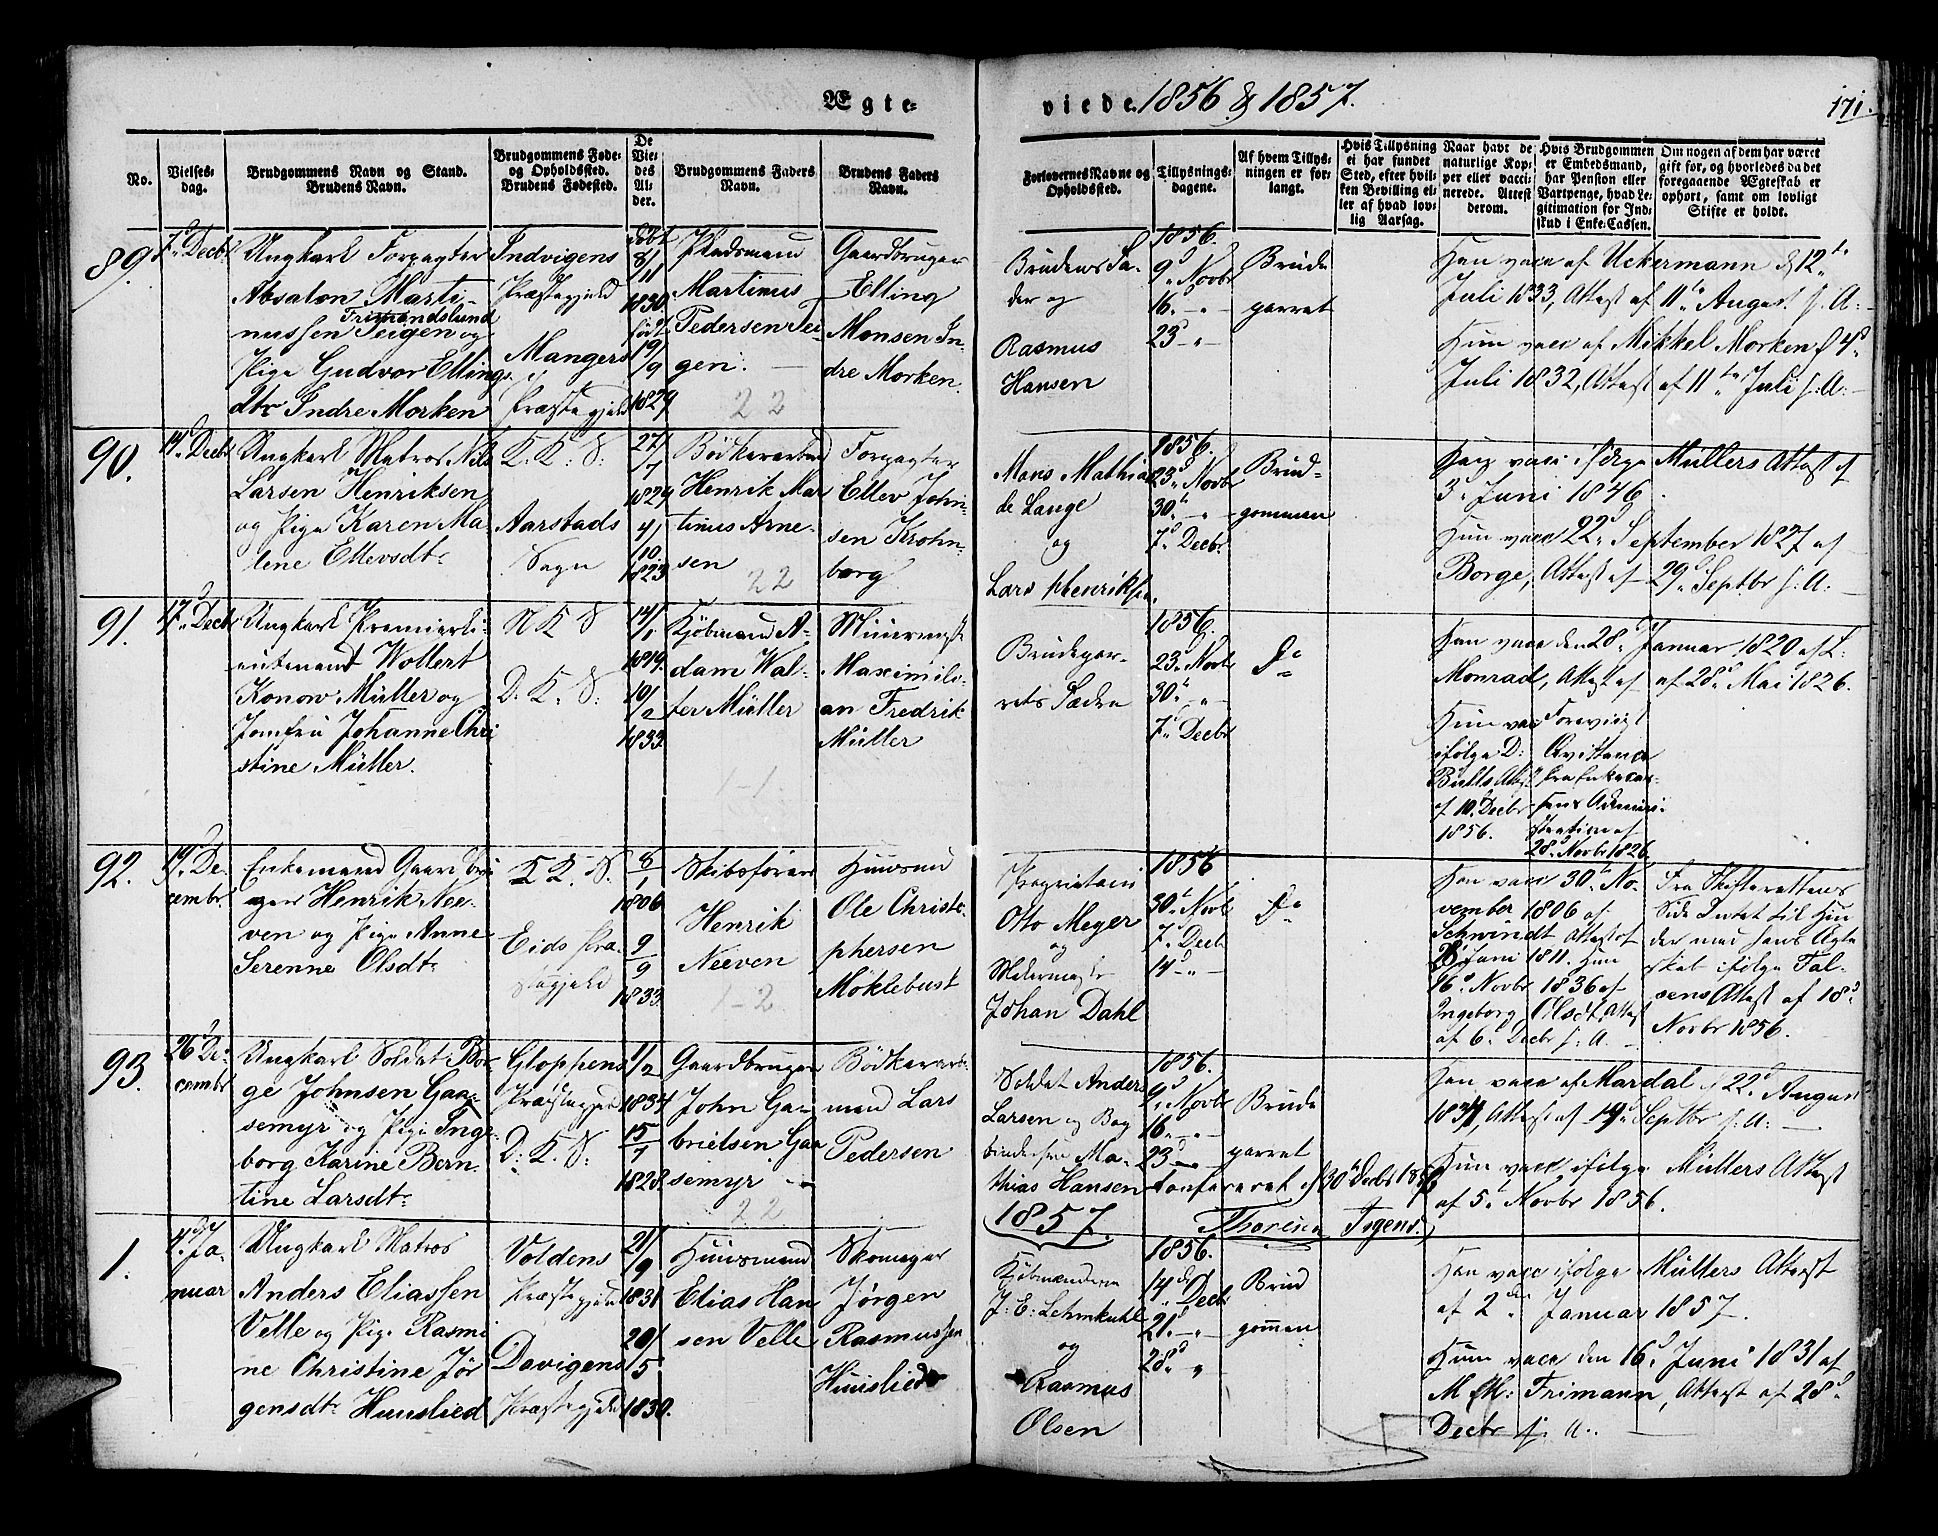 Ægte-
viede 1856 & 1857.
171.
No.
Vielses-
dag.
Brudgommens Navn og Stand.
Brudens Navn.
Brudgommens Føde-
og Opholdssted.
Brudens Fødested.
De
Vie-
des
Al-
der.
Brudgommens Faders
Navn.
Brudens Faders
Navn.
Forlovernes Navne og
Opholdssted.
Tillysnings-
dagene.
Af hvem Tillys-
ningen er for-
langt.
Hvis Tillysning
ei har fundet
Sted, efter hvil-
ken Bevilling el-
ler af hvad lov-
lig Aarsag.
Naar havt de
naturlige Kop-
per eller vacci-
nerede. Attest
derom.
Hvis Brudgommen
er Embedsmand,
har Pension eller
Vartpenge, hvad Le-
gitimation for Ind-
skud i Enke-Cassen.
Om nogen af dem har været
gift før, og hvorledes da det
foregaaende Ægteskab er
ophørt, samt om lovligt
Skifte er holdt.
89.
7d Decbr
Ungkarl Forpagter
Absalon Marti-
Frimandslund
nussen Teigen og
Pige Gudvor Ellings
dtr Indre Morken
Indvigens
Præstegjeld
Mangers
Præstegjeld
født
8/
11
1830.
født
19/
9
1829
Pladsmand
Martinus
Pedersen Tei-
gen.
22
Gaardbruger
Elling
Monsen In-
dre Morken.
Brudens Fa-
der og
Rasmus
Hansen
1856.
9d Novbr
16. - " -
23 - " -
Brude
parret
Han vacc af Uckermann d 12te
Juli 1833, Attest af 11te August s. A: -
Hun vacc af Mikkel Morken d 4d
Juli 1832, Attest af 11te Juli s: A: -
90.
14d Decbr
Ungkarl Matros Nils
Larsen Henriksen
og Pige Karen Ma-
lene Ellevsdtr
K. K: S:
Aarstads
Sogn
27/
7
1829
4/
10.
1823
Bödkersvend
Henrik Mar
tinus Arne-
sen
22
Forpagter
Ellev John-
sen Krohn-
borg
Mons Mathia
de Lange
og
Lars Henriksen.
1856.
23d Novbr
30te - " -
7d Decbr.
Brud-
gommen
Han vacc ifølge Müllers Attest af
3d Juni 1846.
Hun vacc 22d September 1827 af
Borge, Attest af 29d Septbr s: A: -
91.
17d Decbr
Ungkarl Premierli-
eutenant Wollert
Konow Müller og
Jomfru Johanne Chri
stine Müller.
N K S
D: K. S:
14/
1
1819.
10/
2
1833.
Kjöbmand A-
dam Wal-
ter Müller
1-1.
Muurmest
Maximili-
an Fredrik
Müller
Brudepar-
rets Fædre
1856.
23d Novbr
30te - " -
7d Decbr
Do
Han vacc den 28d Januar 1820 af L.
Monrad, Attest af 28d Mai 1826.
Hun vacc
ifølge D:
Bulls Attest
af 10d Decbr
1856.
Forevisist
Qvittance
fra Enkecas-
sens Admini-
stration af
28d Novbr 1826
92.
19d De-
cembr.
Enkemand Gaardbru
ger Henrik Nee-
ven og Pige Anne
Serenne Olsdtr
K K. S.
Eids Præ-
stegjeld
8
1
1806
9
9
1833
Skibsfører
Henrik
Neeven
1-2
Huusmd
Ole Christo-
phersen
Möklebust
Proprietair
Otto Meyer
og
Malermester
Johan Dahl
1856
30te Novbr
7d Decbr
14d - " -
Do
Han vacc 30te No-
vember 1806 af
Schwindt Attest af
28 Juni 1811. Hun
16d Novbr 1836 af
Ingeborg Olsdtr, Attest
af 6d Decbr s: A. -
Fra Skifterettens
Side Intet til Hin
der mod hans Ægte
skab ifølge Fal-
sens Attest af 18d
Novbr 1856.
93.
26d De-
cembr
Ungkarl Soldat Bör
ge Johnsen Gaa-
semyr og Pige Inge-
borg Karine Bern-
tine Larsdtr
Gloppens
Præstegjeld
D: K. S:
1/
2
1834
15
7
1823.
Gaardbruger
John Ga-
brielsen Gaa
semyr - " -
22
Bödkersvend
mand Lars
Pedersen
Soldat Anders
Larsen og Bog
bindersvend Ma-
thias Hansen
1856.
9d Novbr
16d - " -
23d - " -
Brude
parret
Confereret d 30te Decbr 1856
Thorine Irgens.
Han vacc af Mardal d 22d August
1834, Attest af 19d Septbr s: A: -
Hun vacc ifølge Müllers Attest
af 5te Novbr 1856.
1857.
1.
4d Ja-
nuar
Ungkarl Matros
Anders Eliassen
Velle og Pige Rasmi
ne Christine Jör
gensdtr Huuslied
Voldens
Præstegjeld
Davigens
Præstegjeld
21/
9
1831
20/
5
1830.
Huusmand
Elias Han
sen Velle
Skomager
Jörgen
Rasmussen
Huuslied
Kjöbmændene
J. E: Lehmkuhl
og
Rasmus
Olsen
1856.
14de Decbr
21d - " -
28d "
Brud
gommen
Han vacc ifølge Müllers Attest
af 2den Januar 1857.
Hun vacc den 16d Juni 1831 af
M. M: Frimann, Attest af 28d
Decbr s. A.